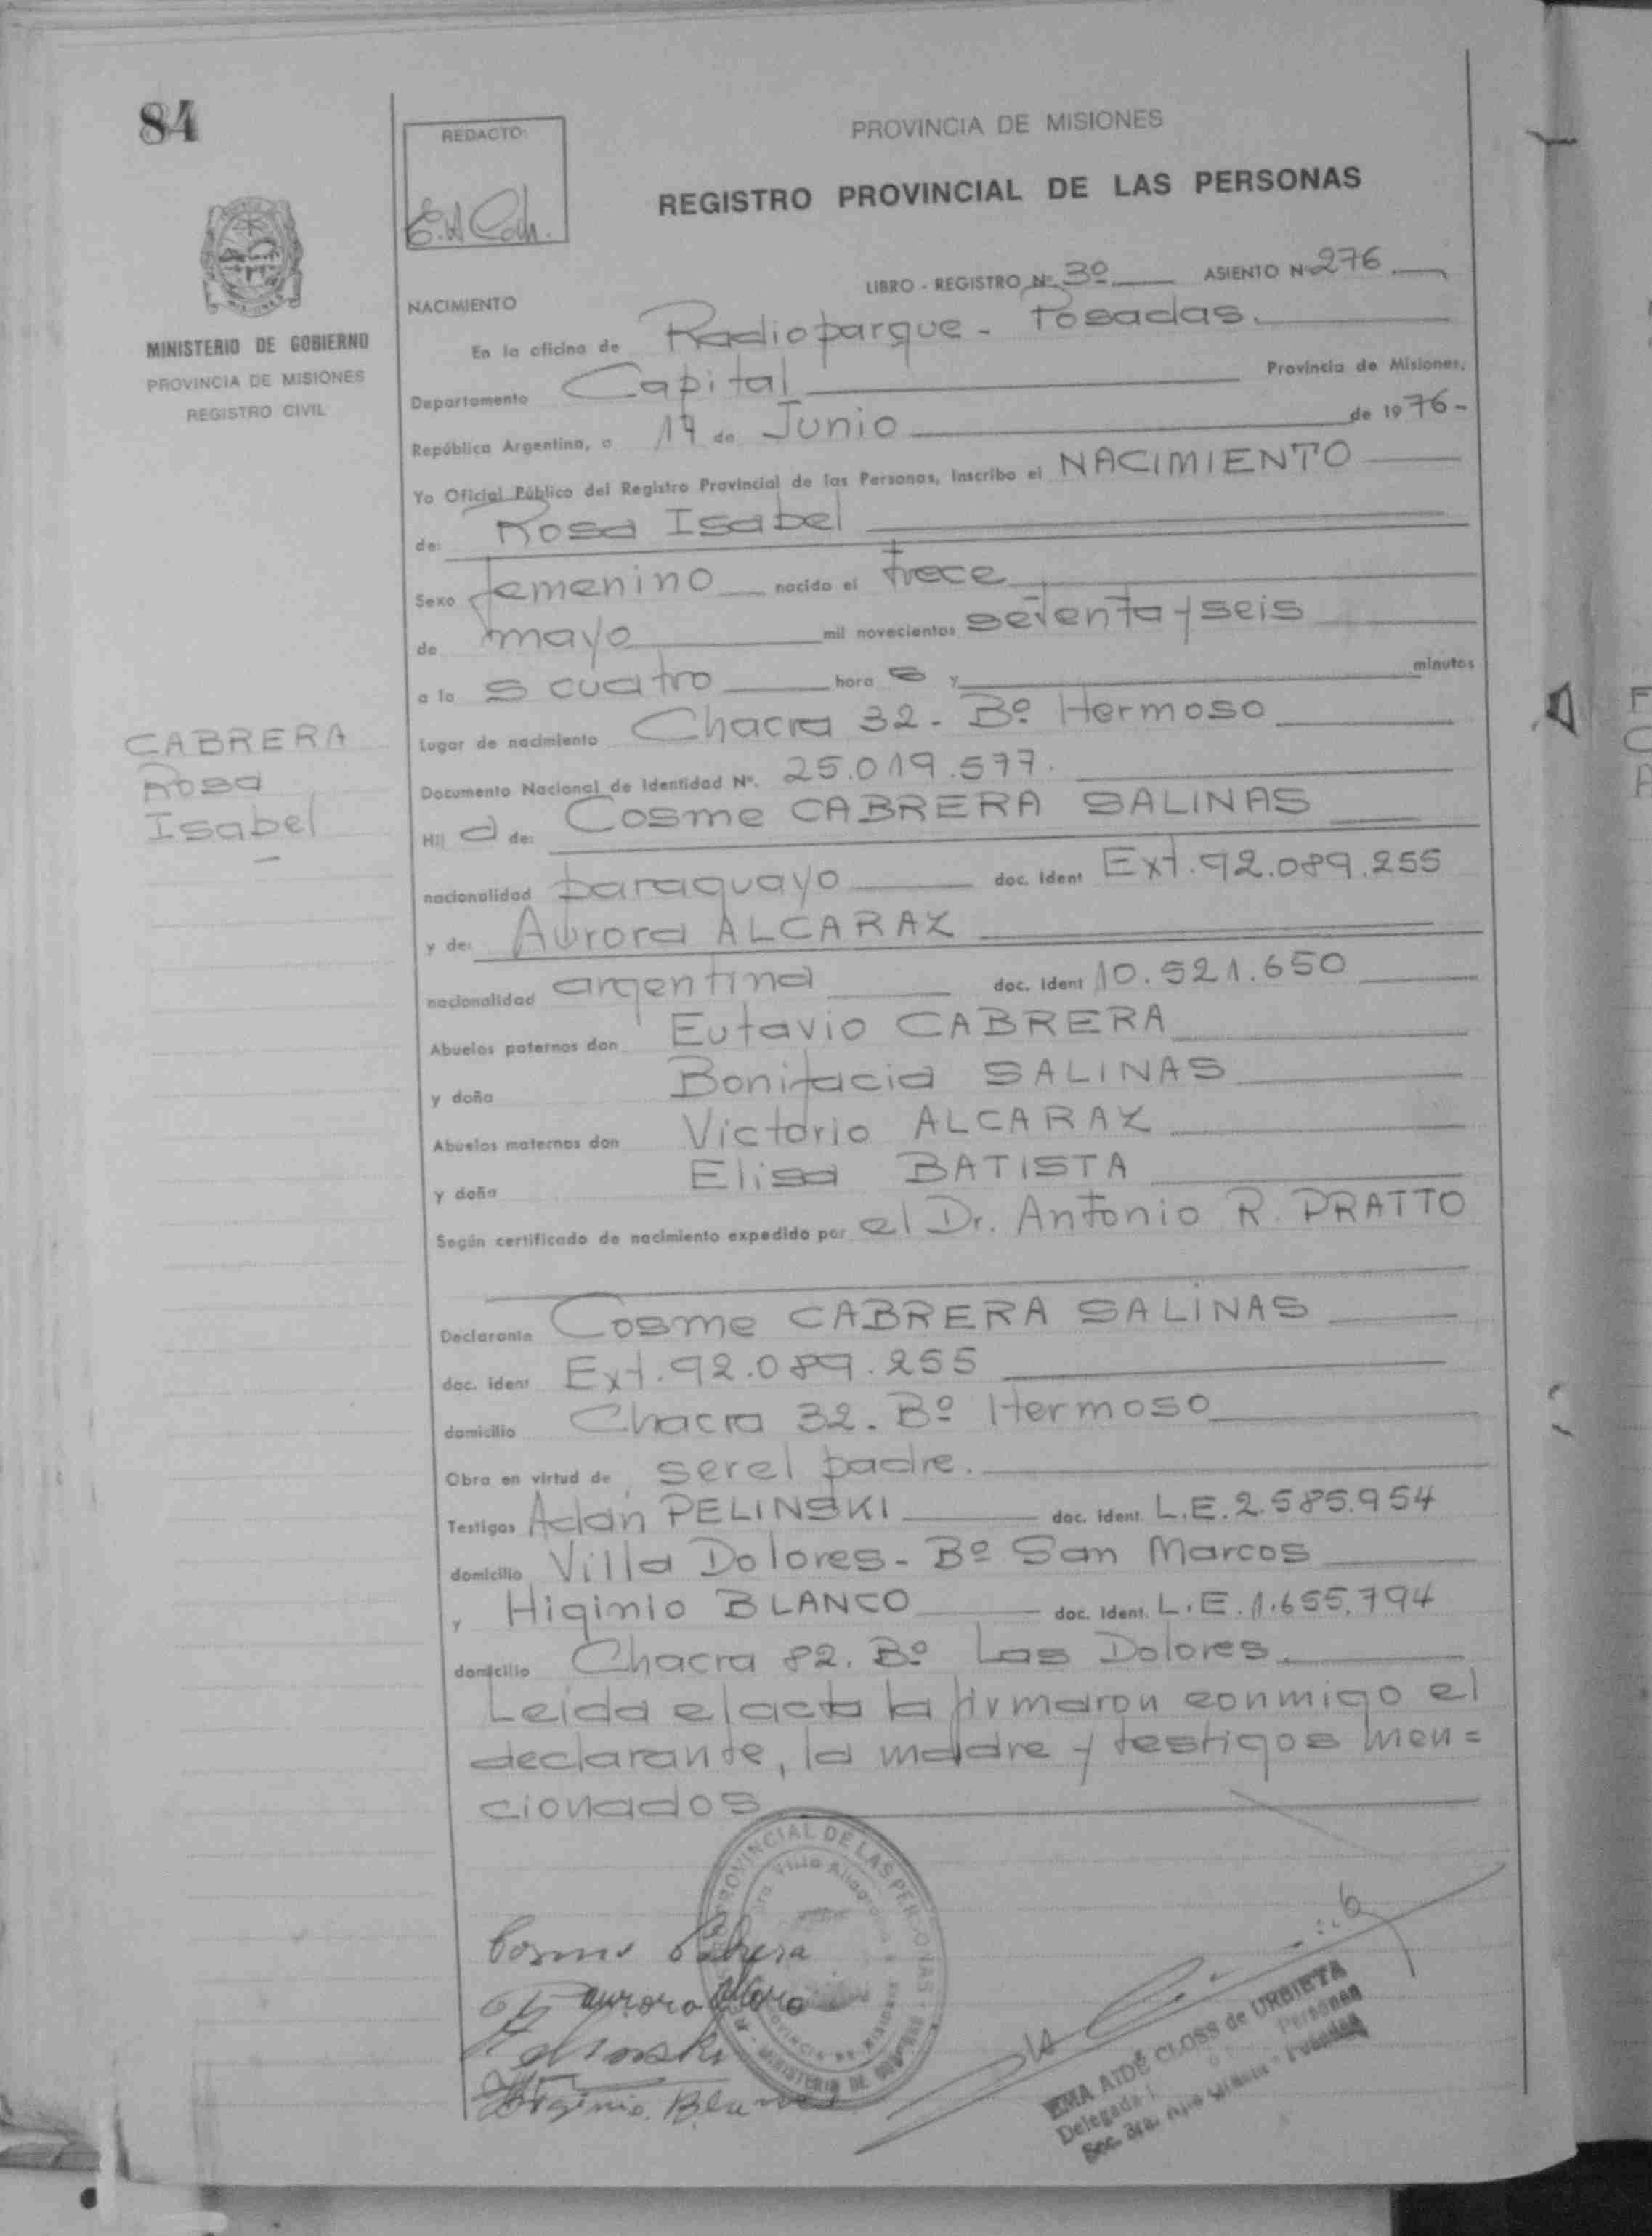 84
REDACTO:
PROVINCIA DE MISIONES
REGISTRO PROVINCIAL DE LAS PERSONAS
LIBRO - REGISTRO Nº 3º ASIENTO Nº 276
MINISTERIO DE GOBIERNO
PROVINCIA DE MISIONES
REGISTRO CIVIL
NACIMIENTO
En la oficina de Radioparque - Posadas.
Departamento Capital Provincia de Misiones,
República Argentina, a 17 de Junio de 1976-
Yo Oficial Público del Registro Provincial de las Personas, Inscribo el NACIMIENTO
de: Rosa Isabel
Sexo femenino nacido el trece
de mayo mil novecientos setenta y seis
a la s cuatro hora s y minutos
Lugar de nacimiento Chacra 32 - Bº Hermoso
CABRERA
Rosa
Isabel
Documento Nacional de Identidad Nº. 25.019.577.
Hij a de: Cosme CABRERA SALINAS
nacionalidad paraguayo doc. Ident Ext. 92.089.255
y de: Aurora ALCARAZ
nacionalidad argentina doc. Ident 10.521.650
Abuelos paternos don Eutavio CABRERA
y doña Bonifacia SALINAS
Abuelos maternos don Victorio ALCARAZ
y doña Elisa BATISTA
Según certificado de nacimiento expedido por el Dr. Antonio R. PRATTO
Declarante Cosme CABRERA SALINAS
doc. ident Ext. 92.089.255
domicilio Chacra 32 - Bº Hermoso
Obra en virtud de ser el padre.
Testigos Adán PELINSKI doc. Ident. L.E. 2.585.954
domicilio Villa Dolores - Bº San Marcos
y Higinio BLANCO doc. Ident. L.E. 1.655.794
domicilio Chacra 82. Bº Las Dolores.
Leida el acta la firmaron conmigo el
declarante, la madre y testigos men=
cionados
PROVINCIAL DE LAS PERSONAS
MINISTERIO DE GOBIERNO
Cosme Cabrera
Aurora
Higinio Blanco
EMA AIDÉ CLOSS de URBIETA
Delegada
Sec. 3ra.